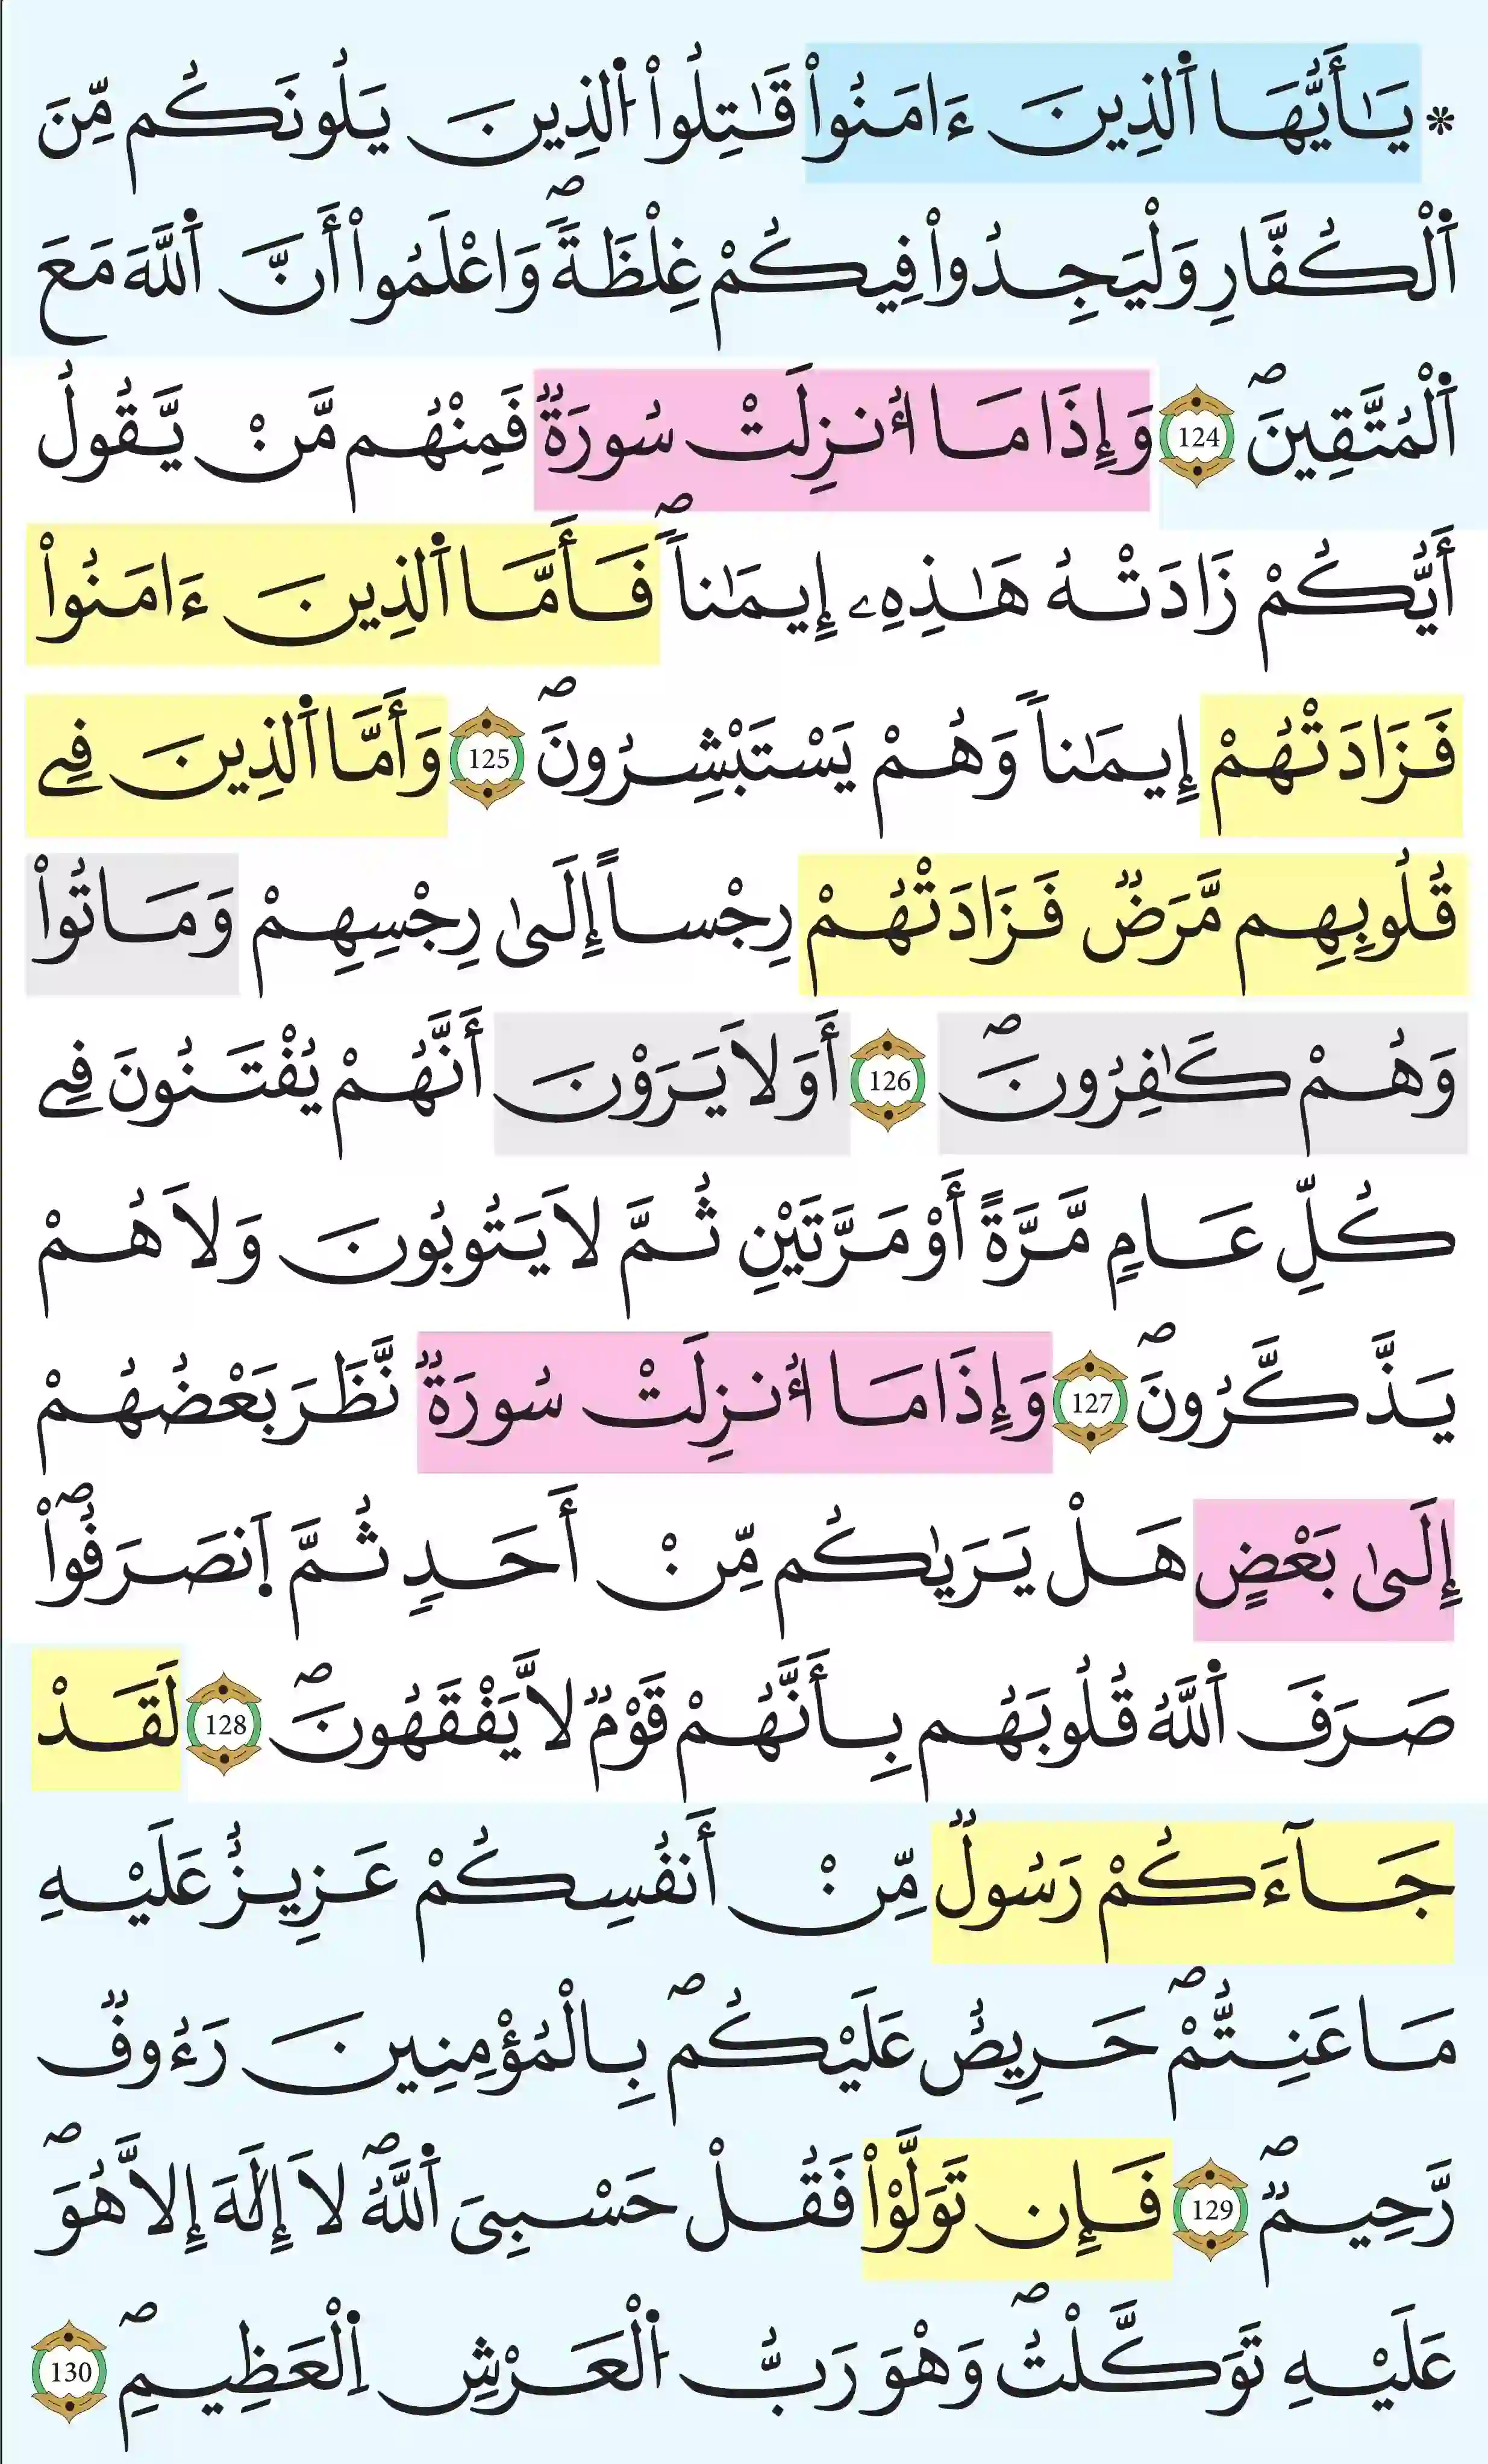 * يَٰأَيُّهَا اَ۬لذِينَ ءَامَنُواْ قَٰتِلُواْ اُ۬لذِينَ يَلُونَكُم مِّنَ
اَ۬لْكُفَّارِ وَلْيَجِدُواْ فِيكُمْ غِلْظَةٗۖ وَاعْلَمُواْ أَنَّ اَ۬للَّهَ مَعَ
اَ۬لْمُتَّقِينَۖ 124 وَإِذَا مَا أُنزِلَتْ سُورَةٞ فَمِنْهُم مَّنْ يَّقُولُ
أَيُّكُمْ زَادَتْهُ هَٰذِهِۦ إِيمَٰناٗۖ فَأَمَّا اَ۬لذِينَ ءَامَنُواْ
فَزَادَتْهُمْ إِيمَٰناٗ وَهُمْ يَسْتَبْشِرُونَۖ 125 وَأَمَّا اَ۬لذِينَ فِے
قُلُوبِهِم مَّرَضٞ فَزَادَتْهُمْ رِجْساً إِلَىٰ رِجْسِهِمْ وَمَاتُواْ
وَهُمْ كَٰفِرُونَۖ 126 أَوَلَا يَرَوْنَ أَنَّهُمْ يُفْتَنُونَ فِے
كُلِّ عَامٖ مَّرَّةً أَوْ مَرَّتَيْنِ ثُمَّ لَا يَتُوبُونَ وَلَا هُمْ
يَذَّكَّرُونَۖ 127 وَإِذَا مَا أُنزِلَتْ سُورَةٞ نَّظَرَ بَعْضُهُمْ
إِلَىٰ بَعْضٍ هَلْ يَرَيٰكُم مِّنْ أَحَدٖ ثُمَّ اَنصَرَفُواْۖ
صَرَفَ اَ۬للَّهُ قُلُوبَهُم بِأَنَّهُمْ قَوْمٞ لَّا يَفْقَهُونَۖ 128 لَقَدْ
جَآءَكُمْ رَسُولٞ مِّنْ أَنفُسِكُمْ عَزِيزٌ عَلَيْهِ
مَا عَنِتُّمْۖ حَرِيصٌ عَلَيْكُمۖ بِالْمُؤْمِنِينَ رَءُوفٞ
رَّحِيمٞۖ 129 فَإِن تَوَلَّوْاْ فَقُلْ حَسْبِيَ اَ۬للَّهُۖ لَا إِلَٰهَ إِلَّا هُوَۖ
عَلَيْهِ تَوَكَّلْتُۖ وَهْوَ رَبُّ اُ۬لْعَرْشِ اِ۬لْعَظِيمِۖ 130